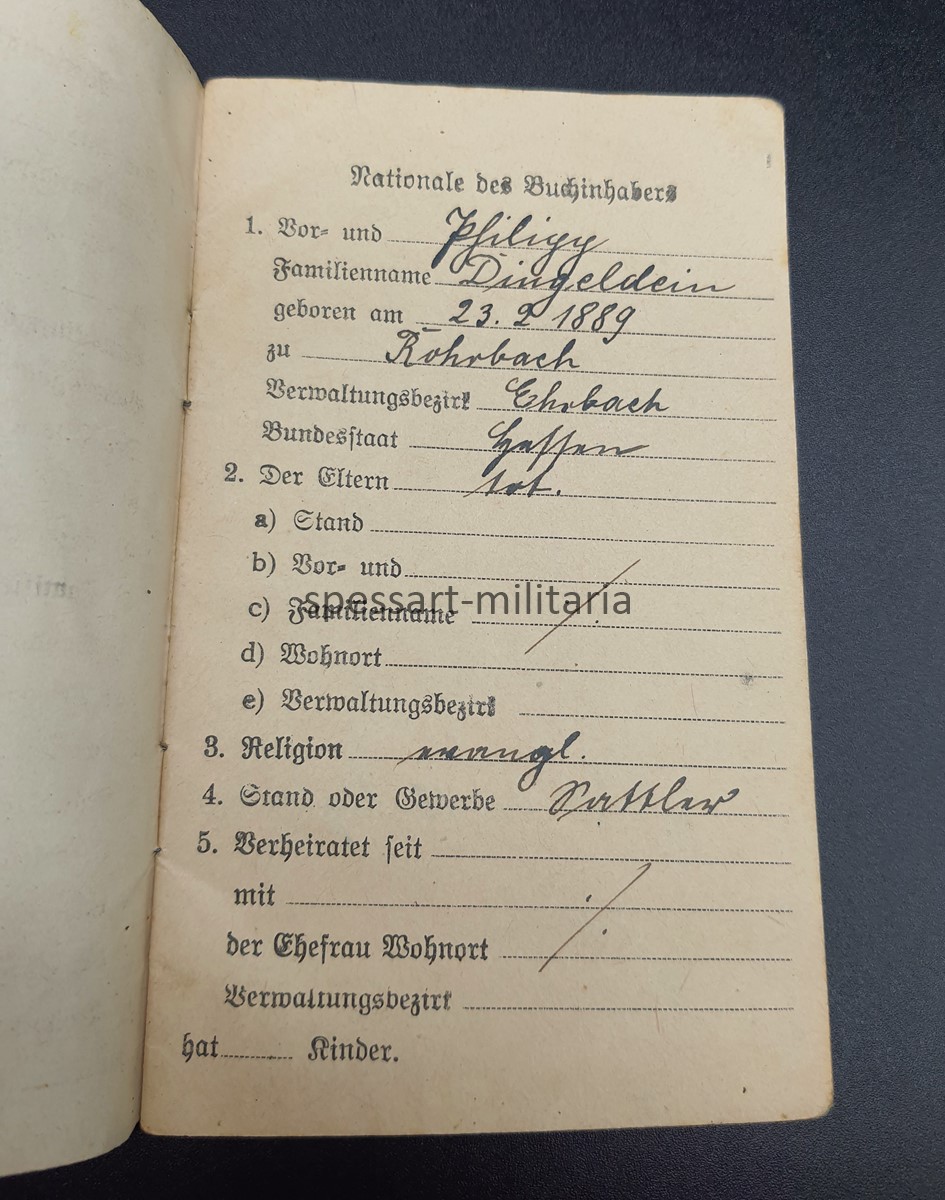 Nationale des Buchinhabers
1. Vor- und Philipp
Familienname Dingeldein
geboren am 23. 2 1889
zu Rohrbach
Verwaltungsbezirk Ehrbach
Bundesstaat Hessen
2. Der Eltern tot.
a) Stand
b) Vor- und
c) Familienname
spessart-militaria
d) Wohnort
e) Verwaltungsbezirk
3. Religion evangl.
4. Stand oder Gewerbe Sattler
5. Verheiratet seit
mit
der Ehefrau Wohnort
Verwaltungsbezirk
hat Kinder.